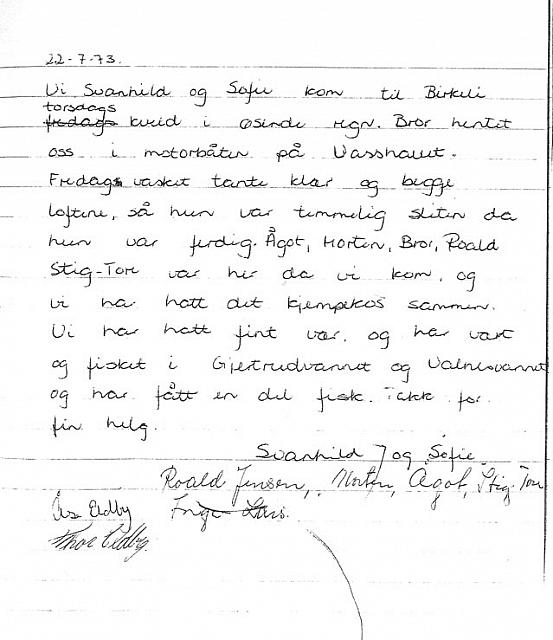 22-7-73.
Vi Svanhild og Sofie kom til Birkeli
torsdags
fredags kveld i øsende regn. Bror hentet
oss i motorbåten på Vasshauet.
Fredags vasket tante klær og begge
loftene, så hun var temmelig sliten da
hun var ferdig. Ågot, Morten, Bror, Roald
Stig-Tore var her da vi kom, og
vi har hatt det kjempekos sammen.
Vi har hatt fint vær, og har vært
og fisket i Gjertrudvannet og Valnesvannet
og har fått en del fisk. Takk for
fin helg.
Svanhild J og Sofie.
Roald Jensen, Morten, Ågot, Stig-Tore
Eldby Inge
Thor Eldby.